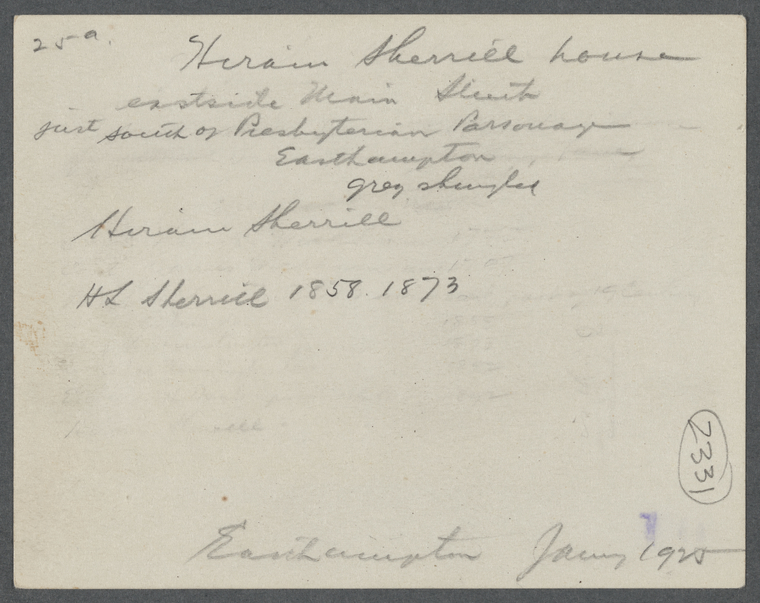 25a.
Hiram Sherrill house
eastside Main Street
just south of Presbyterian Parsonage
Easthampton
grey shingled
Hiram Sherrill
HL Sherrill 1858. 1873
2331
Easthampton Jany 1925